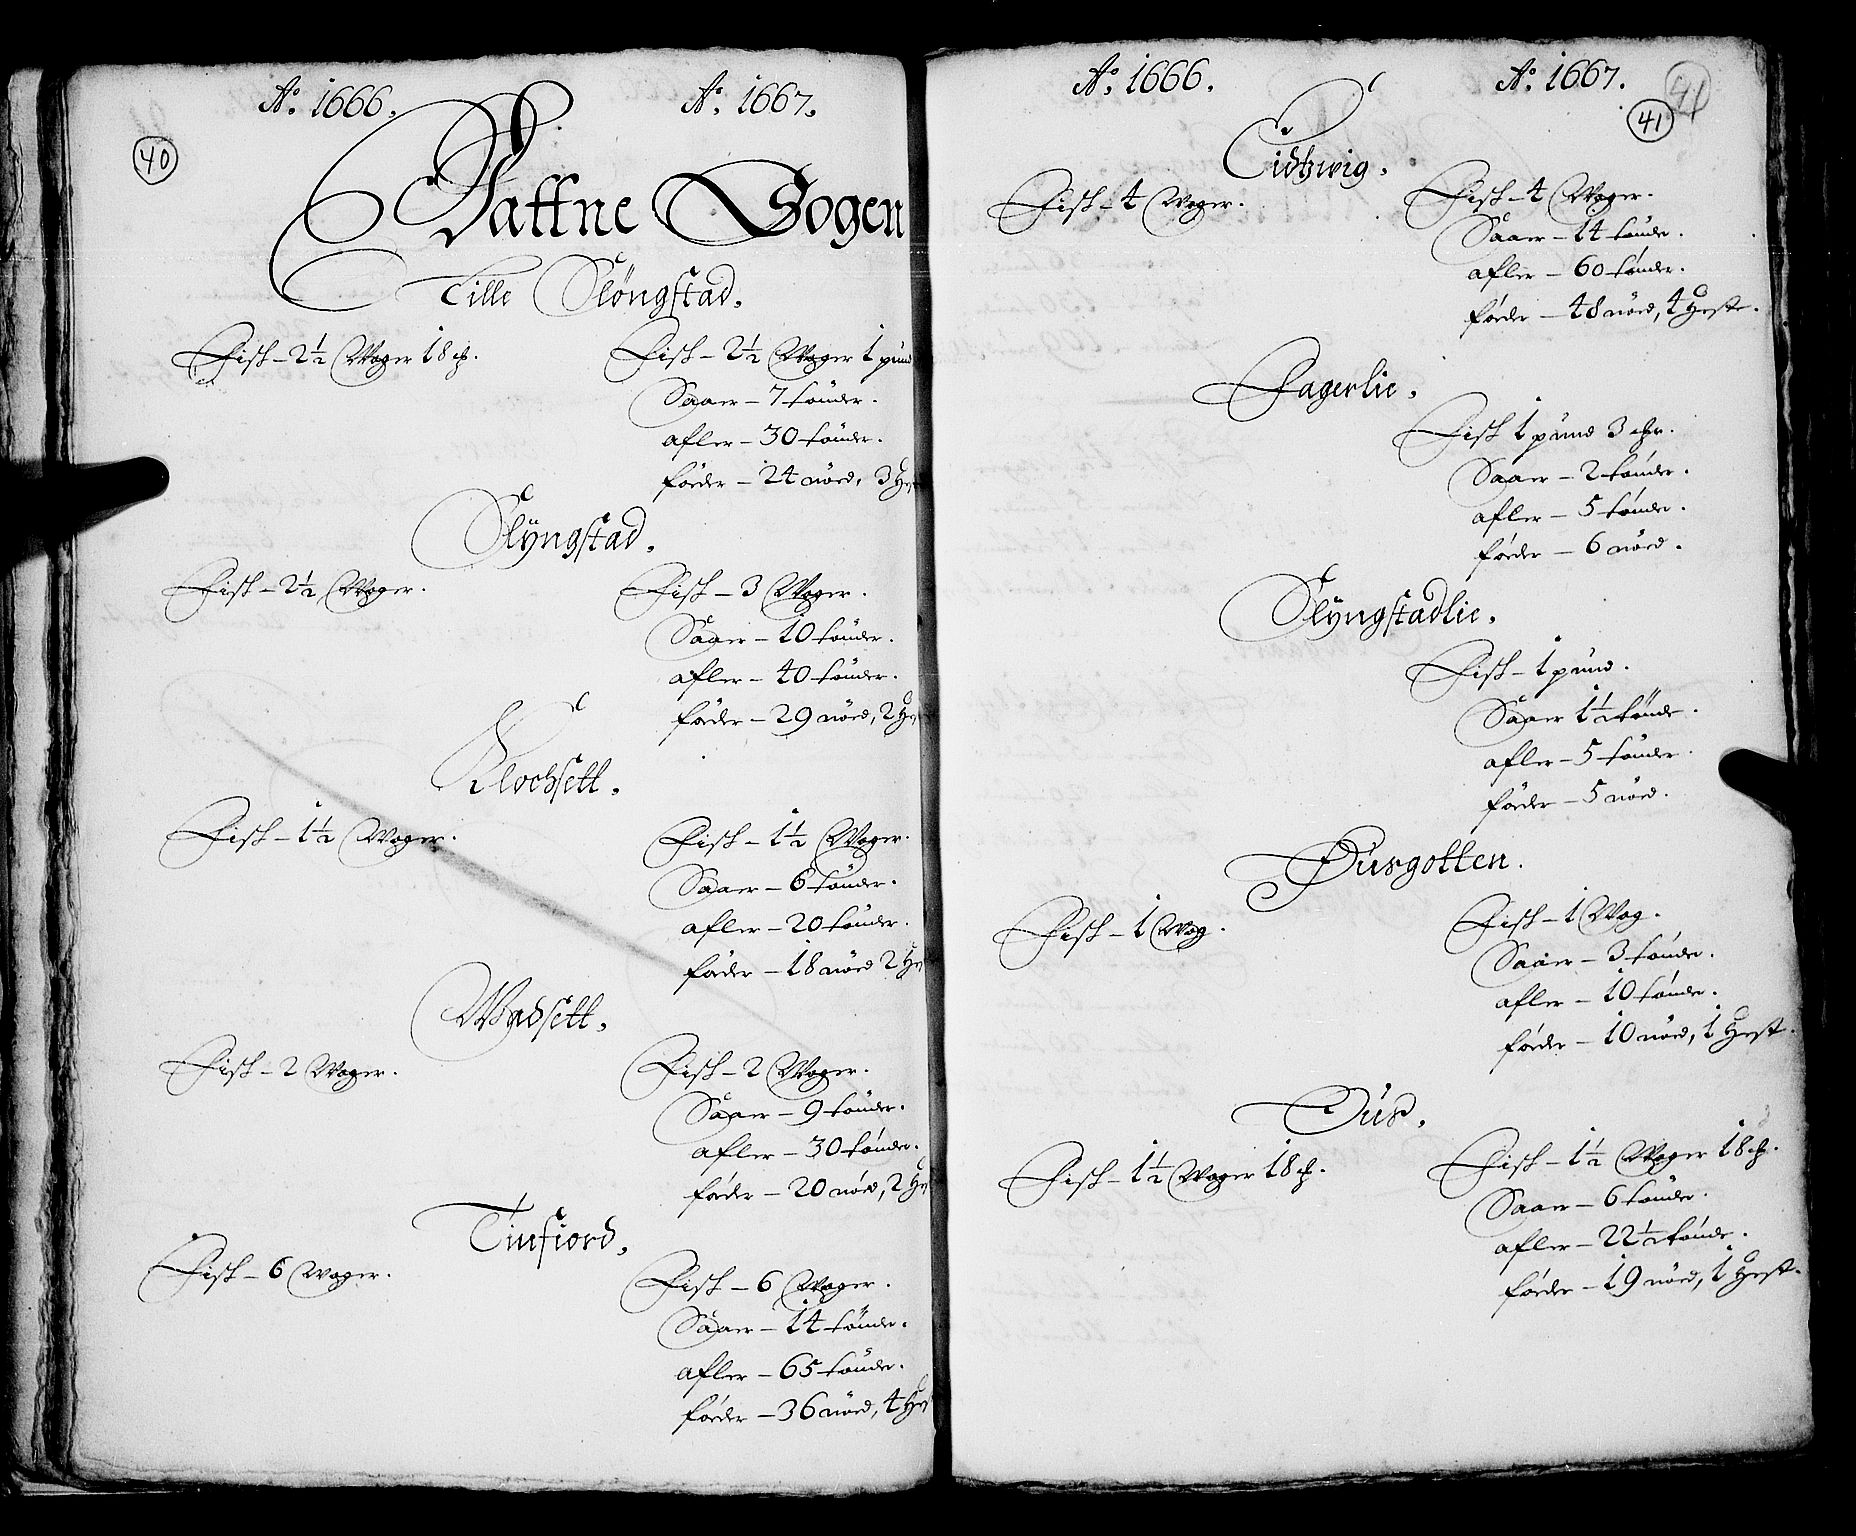 Ao. 1666. Ao. 1667.
40
Vattne Sogen
Lille Slöngstad.
Fisk – 2½ Woger 18 ℔. Fisk – 2½ Woger 1 pund
Saaer – 7 tönder.
afler – 30 tönder.
föeder – 24 nöed, 3 Hest
Slÿngstad.
Fisk – 2½ Woger. Fisk – 3 Woger.
Saaer – 10 tönder.
afler – 40 tönder.
föeder – 29 nöed, 2 He
Klochsett.
Fisk – 1½ Woger. Fisk – 1½ Woger.
Saaer – 6 tönder.
afler – 20 tönder.
föeder – 18 nöed 2 He
Wadsett.
Fisk – 2 Woger. Fisk – 2 Woger.
Saaer – 9 tönder.
afler – 30 tönder.
föeder – 20 nöed, 2 He
Tinfiord.
Fisk – 6 Woger. Fisk – 6 Woger.
Saaer – 14 tönder.
afler – 65 tönder.
föeder – 36 nöed, 4 Hes
Ao. 1666. Ao. 1667.
41
41
Eidtzwig.
Fisk – 4 Woger. Fisk – 4 Woger.
Saaer – 14 tönder.
afler – 60 tönder.
föeder – 48 nöed, 4 Heste.
Fagerlie.
Fisk 1 pund 3 ℔r.
Saaer – 2 tönder.
afler – 5 tönder.
föeder – 6 nöed.
Slÿngstadlie.
Fisk – 1 pund.
Saaer 1½ tönde.
afler – 5 tönder.
föeder – 5 nöed.
Dusgotten.
Fisk – 1 Wog. Fisk – 1 Wog.
Saaer – 3 tönder.
afler – 10 tönder.
föeder – 10 nöed, 1 Hest.
Dus.
Fisk – 1½ Woger 18 ℔. Fisk – 1½ Woger 18 ℔.
Saaer – 6 tönder.
afler – 22½ tönde.
föeder – 19 nöed, 1 Hest.